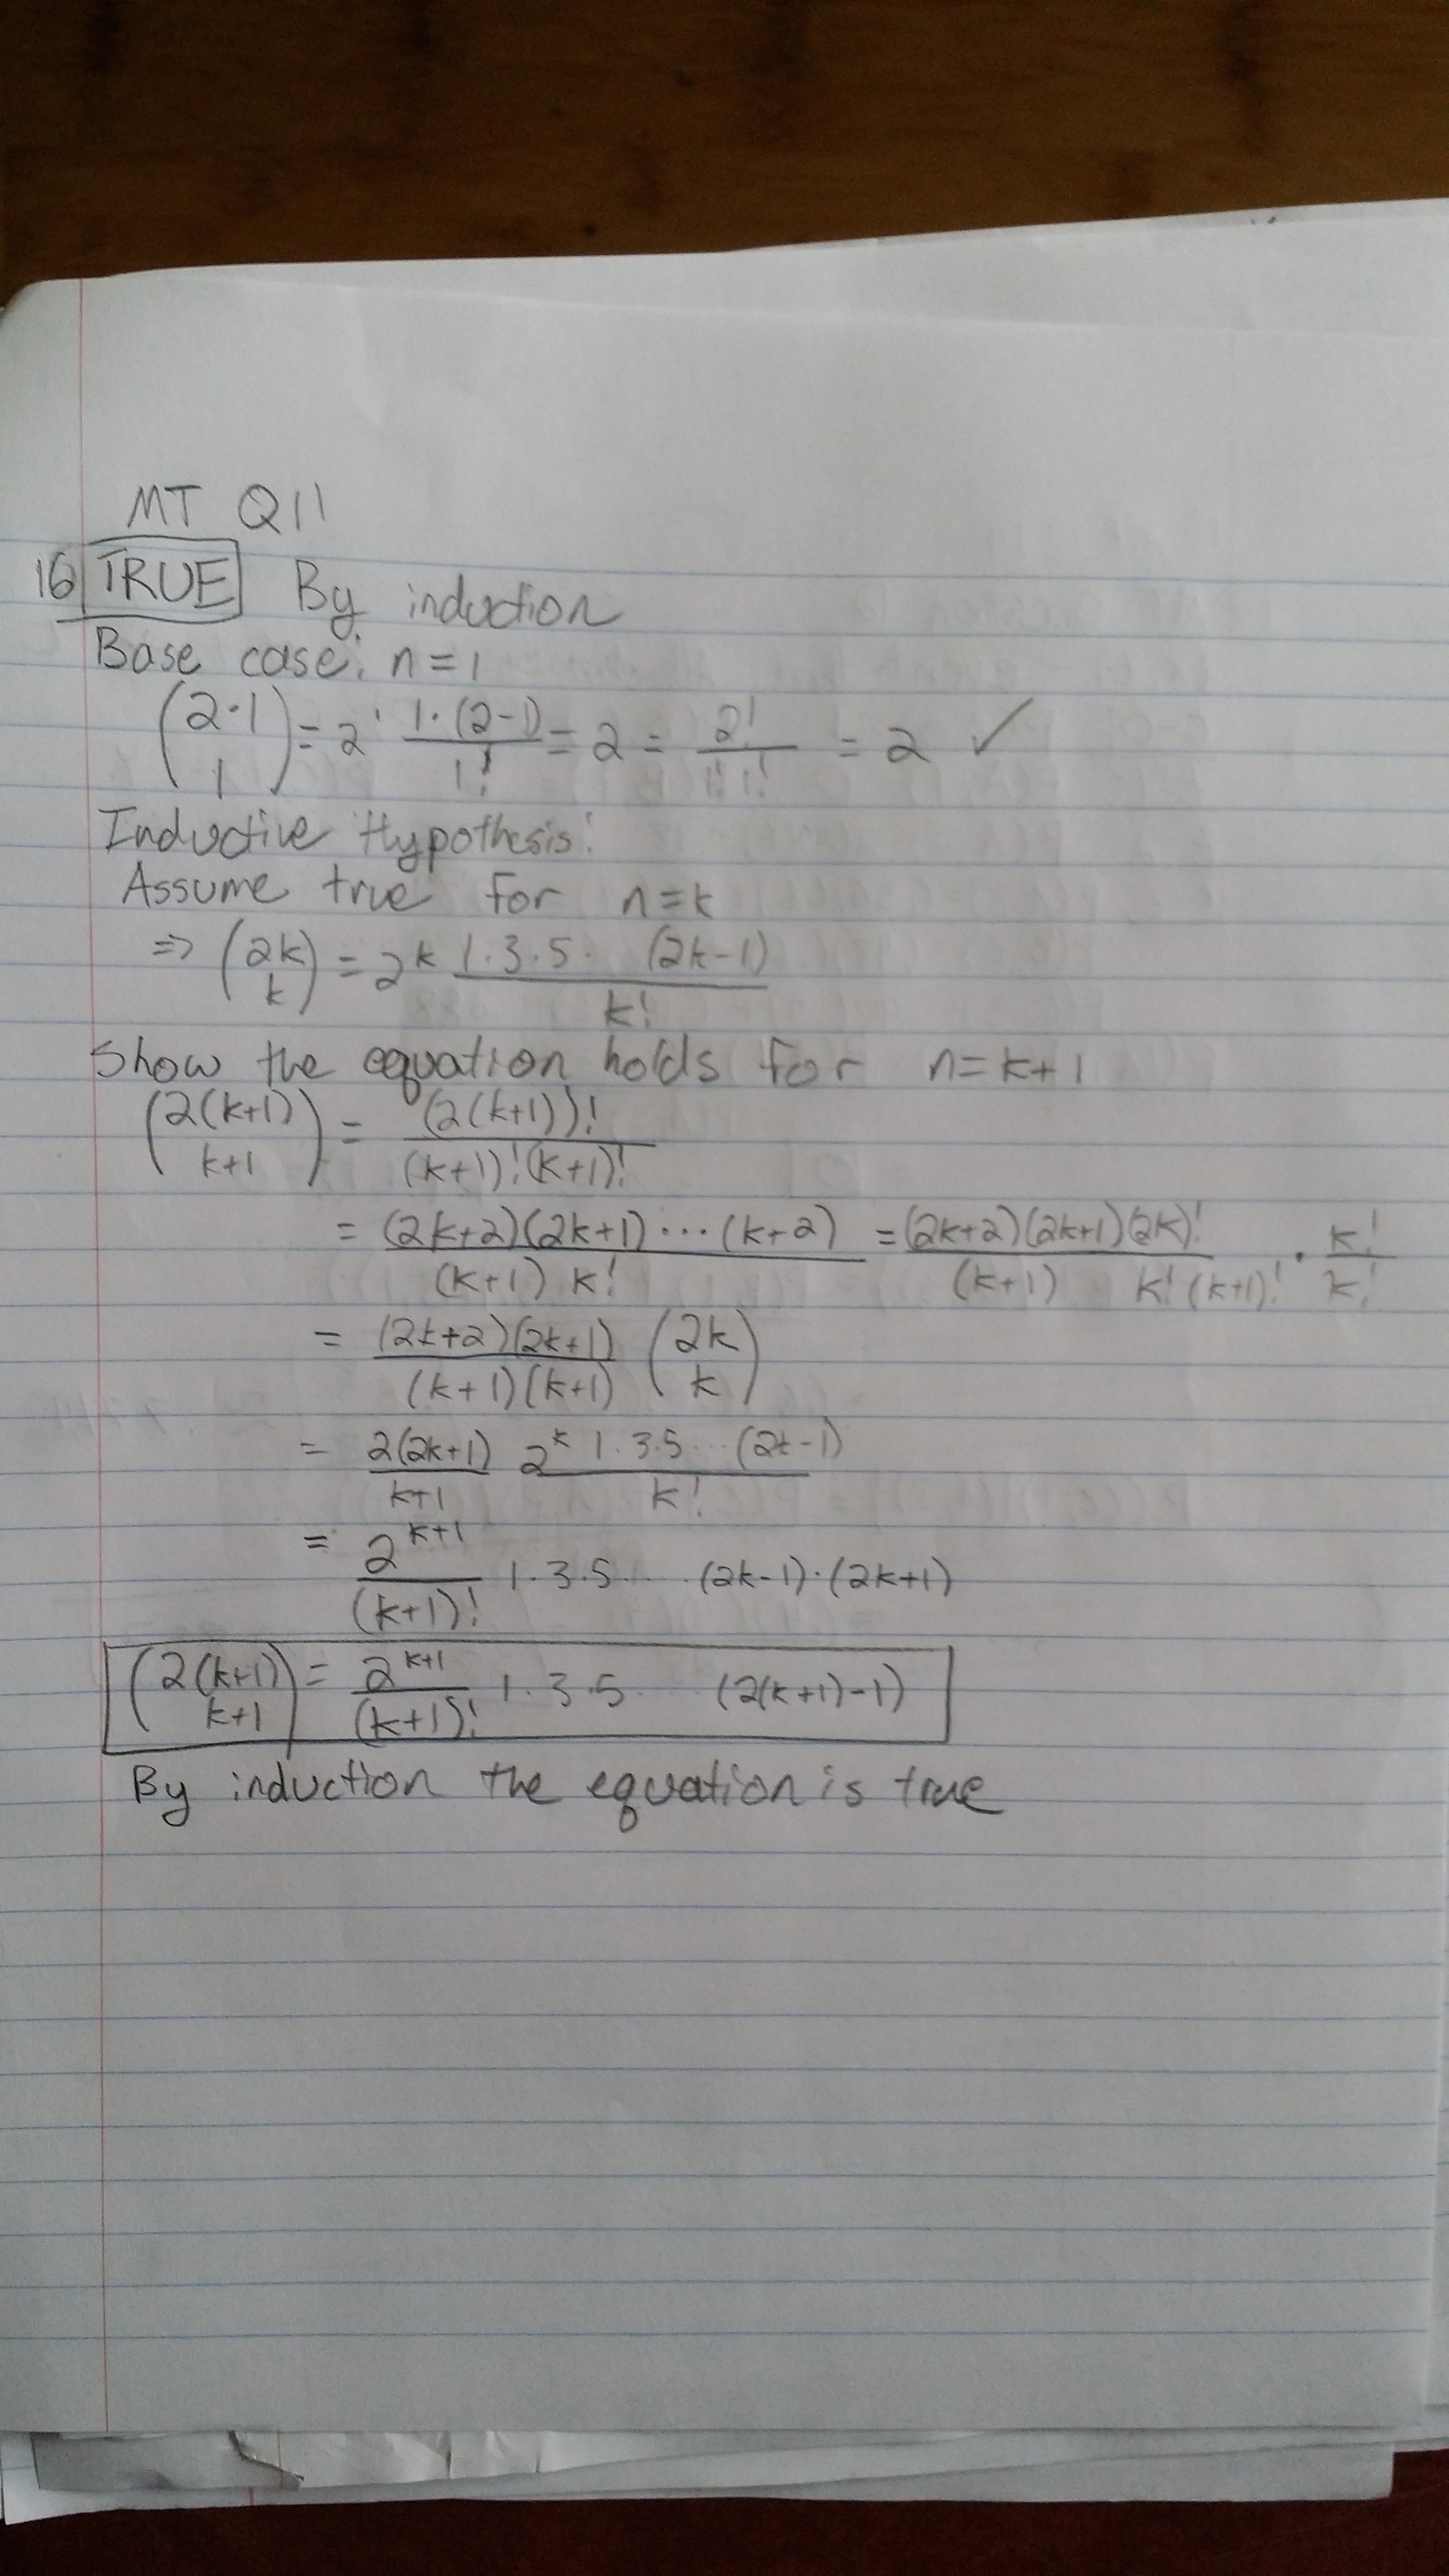 MT Q11
16 TRUE By induction
Base case: n=1
(2·1 1) = 2^1 1·(2-1)/1! = 2 = 2!/1!1! = 2 ✓
Inductive Hypothesis:
Assume true for n=k
⇒ (2k k) = 2^k 1·3·5· (2k-1)/k!
Show the equation holds for n=k+1
(2(k+1) k+1) = (2(k+1))!/(k+1)!(k+1)!
= (2k+2)(2k+1)···(k+2)/(k+1) k! = (2k+2)(2k+1)(2k)!/(k+1) k!(k+1)! · k!/k!
= (2k+2)(2k+1)/(k+1)(k+1) (2k k)
= 2(2k+1)/k+1 2^k 1·3·5···(2k-1)/k!
= 2^k+1/(k+1)! 1·3·5·...·(2k-1)·(2k+1)
(2(k+1) k+1) = 2^k+1/(k+1)! 1·3·5 (2(k+1)-1)
By induction the equation is true